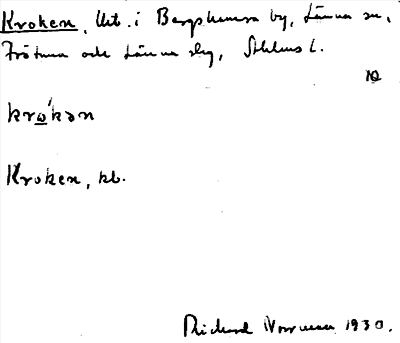 Kroken, Utt. i Bergshamra by, Länna sn,
Frötuna och Länna slg, Sthlms l.
krokən
Kroken, kb.
Rickard Norrman 1930.